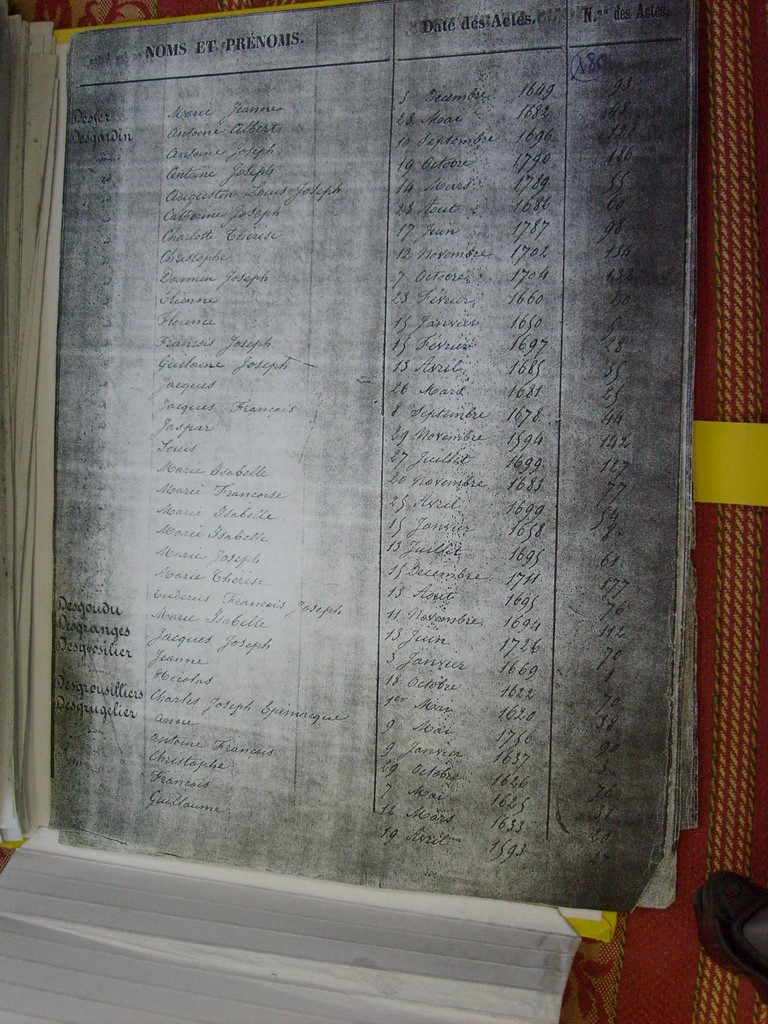 NOMS ET PRÉNOMS. Date des Actes. N.os des Actes.
180
Marie Jeanne 3 Decembre 1649 93
Desgardin Antoine Albert 28 Mai 1682 48
Antoine Joseph 10 Septembre 1696 121
Antoine Joseph 19 Octobre 1790 186
Augustin Louis Joseph 14 Mars 1789 55
Catherine Joseph 28 Aout 1686 60
Charlotte Thérèse 17 Juin 1787 98
Christophe 12 Novembre 1702 134
Damien Joseph 7 Octobre 1704 132
Etienne 23 Février 1660 20
Florence 15 Janvier 1650 5
François Joseph 15 Février 1697 28
Guislaine Joseph 13 Avril 1685 35
Jacques 26 Mars 1681 25
Jacques François 8 Septembre 1678 44
Jaspar 29 Novembre 1594 142
Louis 27 Juillet 1699 127
Marie Isabelle 20 Novembre 1683 77
Marie Françoise 25 Avril 1699 54
Marie Isabelle 15 Janvier 1658 8
Marie Isabelle 13 Juillet 1695 61
Marie Joseph 15 Decembre 1711 177
Marie Thérèse 13 Aout 1695 76
Desgoudu François Joseph 11 Novembre 1694 112
Desgranges Marie Isabelle 13 Juin 1726 70
Desgrosilier Jacques Joseph 3 Janvier 1669 1
Jeanne 18 Octobre 1622 70
Desgrousilliers Nicolas 1er Mai 1620 38
Desgrugelier Charles Joseph Epimacque 9 Mai 1756 90
Anne 9 Janvier 1637
Antoine François 29 Octobre 1626 76
Christophe 7 Mai 1625 31
François 12 Mars 1633 20
Guillaume 19 Avril 1593 27